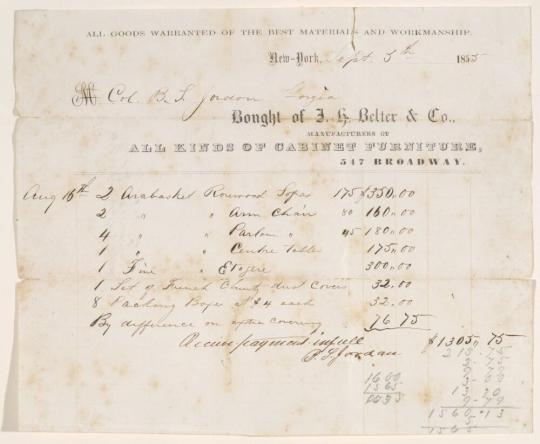 ALL GOODS WARRANTED OF THE BEST MATERIALS AND WORKMANSHIP.
New-York, Sept. 5th 1855
M Col. B. S. Jordan Gorgia
Bought of J. H. Belter & Co.,
MANUFACTURERS OF
ALL KINDS OF CABINET FURNITURE,
547 BROADWAY.
Aug 16th 2 Arabasket Rosewood Sofas 175 $350,00
2 " " Arm Chair 80 160,00
4 " " Parlour " 45 180,00
1 " " Centre Table 175,00
1 Fine " Etagere 300,00
1 Set of French Chintz dust Covers 32.00
8 Packing Boxes at $4 each 32.00
By difference on extra covering 76 75
payment in full $1305,75
Jordan
1600
1565
1560.13